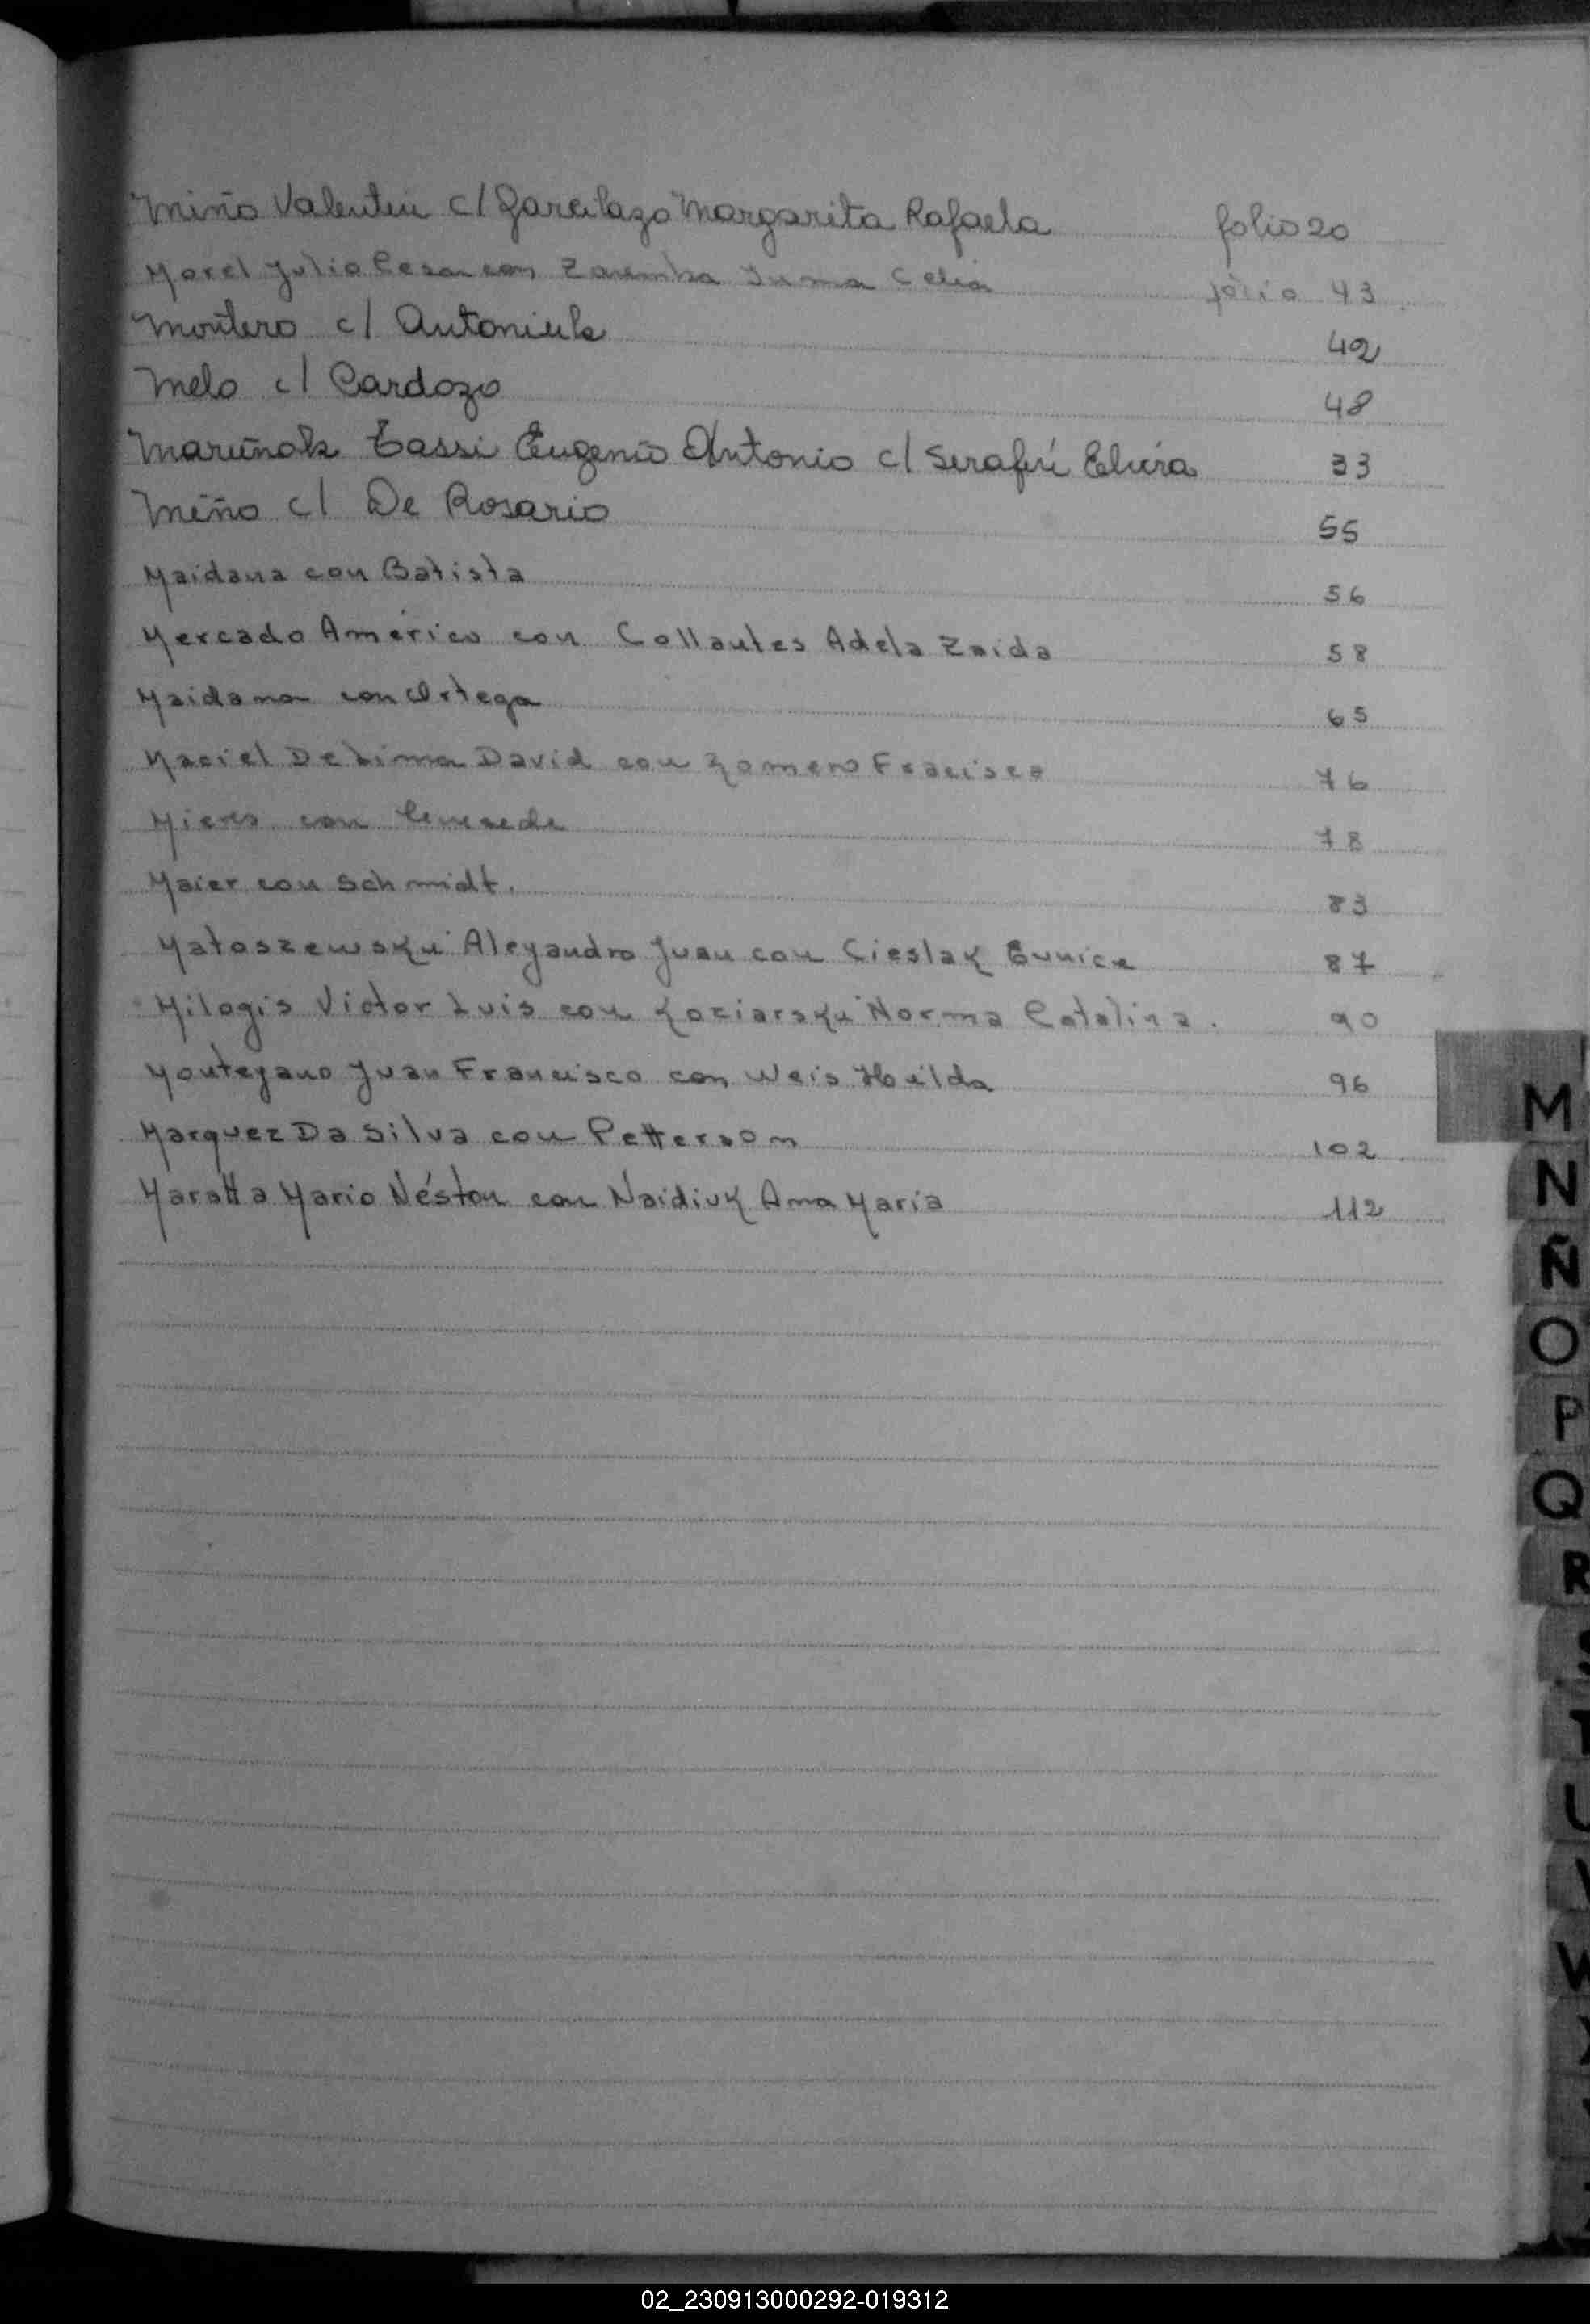 Miño Valentin c/ Garcilazo Margarita Rafaela folio 20
Morel Julio Cesar con Zaremba Irma Celia folio 43
Montero c/ Antoniuk 42
Melo c/ Cardozo 48
Maruñak Tassi Eugenio Antonio c/ Serafini Elvira 33
Miño c/ De Rosario 55
Maidana con Batista 56
Mercado Américo con Collantes Adela Zaida 58
Maidana con Ortega 65
Maciel De Lima David con Romero Fracisca 76
Mieres con 78
Maier con Schmidt. 83
Matoszewsky Aleyandro Juan con Cieslak Eunice 87
Milogis Victor Luis con Koziarsky Norma Catalina. 90
Monteyano Juan Francisco con Weis Hilda 96
Marquez Da Silva con Petterson 102
Maratta Mario Néstor con Naidiuk Ana María 112
M
N
Ñ
O
P
Q
R
S
T
U
V
W
02_230913000292-019312